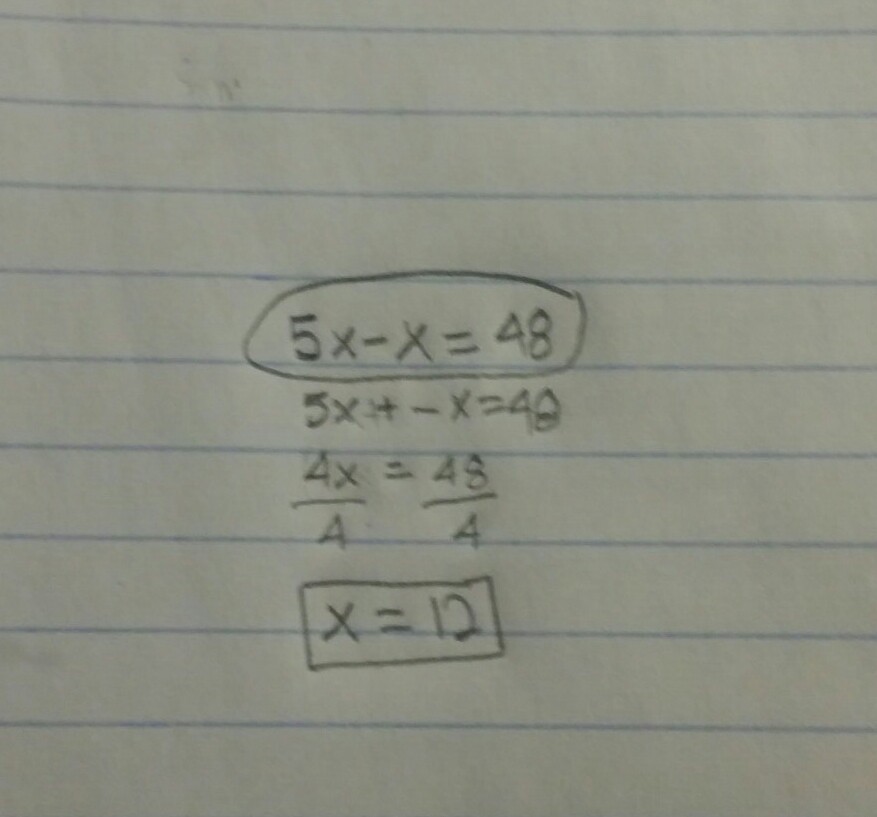 5x-x=48
5x+-x=48
4x = 48
4 4
x=12